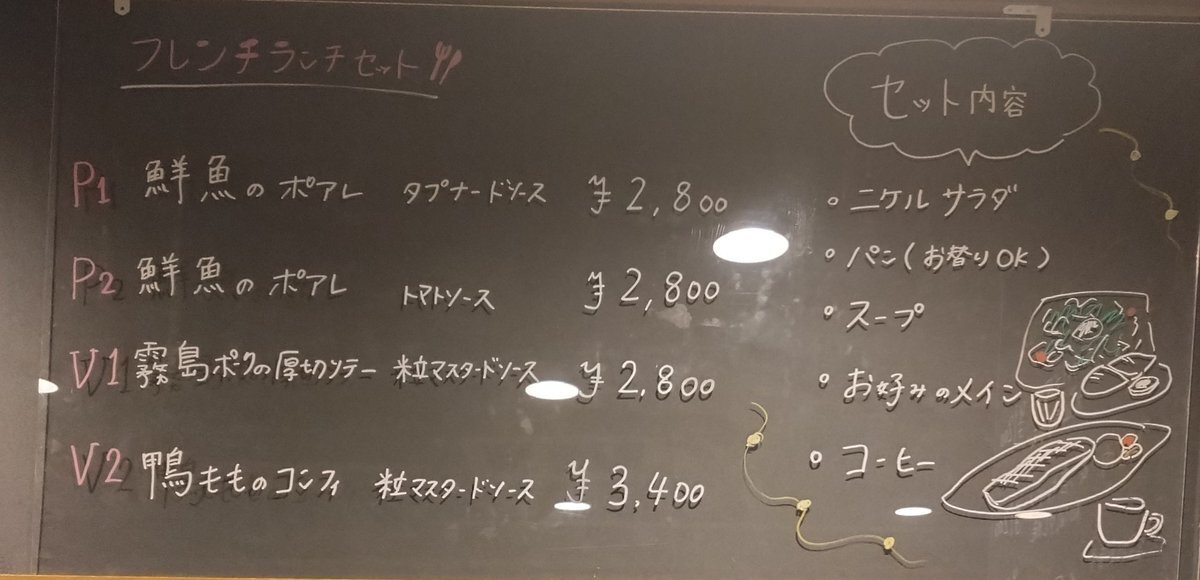 フレンチランチセット
P1 鮮魚のポアレ タプナードソース ¥2,800
P2 鮮魚のポアレ トマトソース ¥2,800
V1 霧島ポークの厚切ソテー 粒マスタードソース ¥2,800
V2 鴨もものコンフィ 粒マスタードソース ¥3,400
セット内容
・ニケルサラダ
・パン(お替りOK)
・スープ
・お好みのメイン
・コーヒー